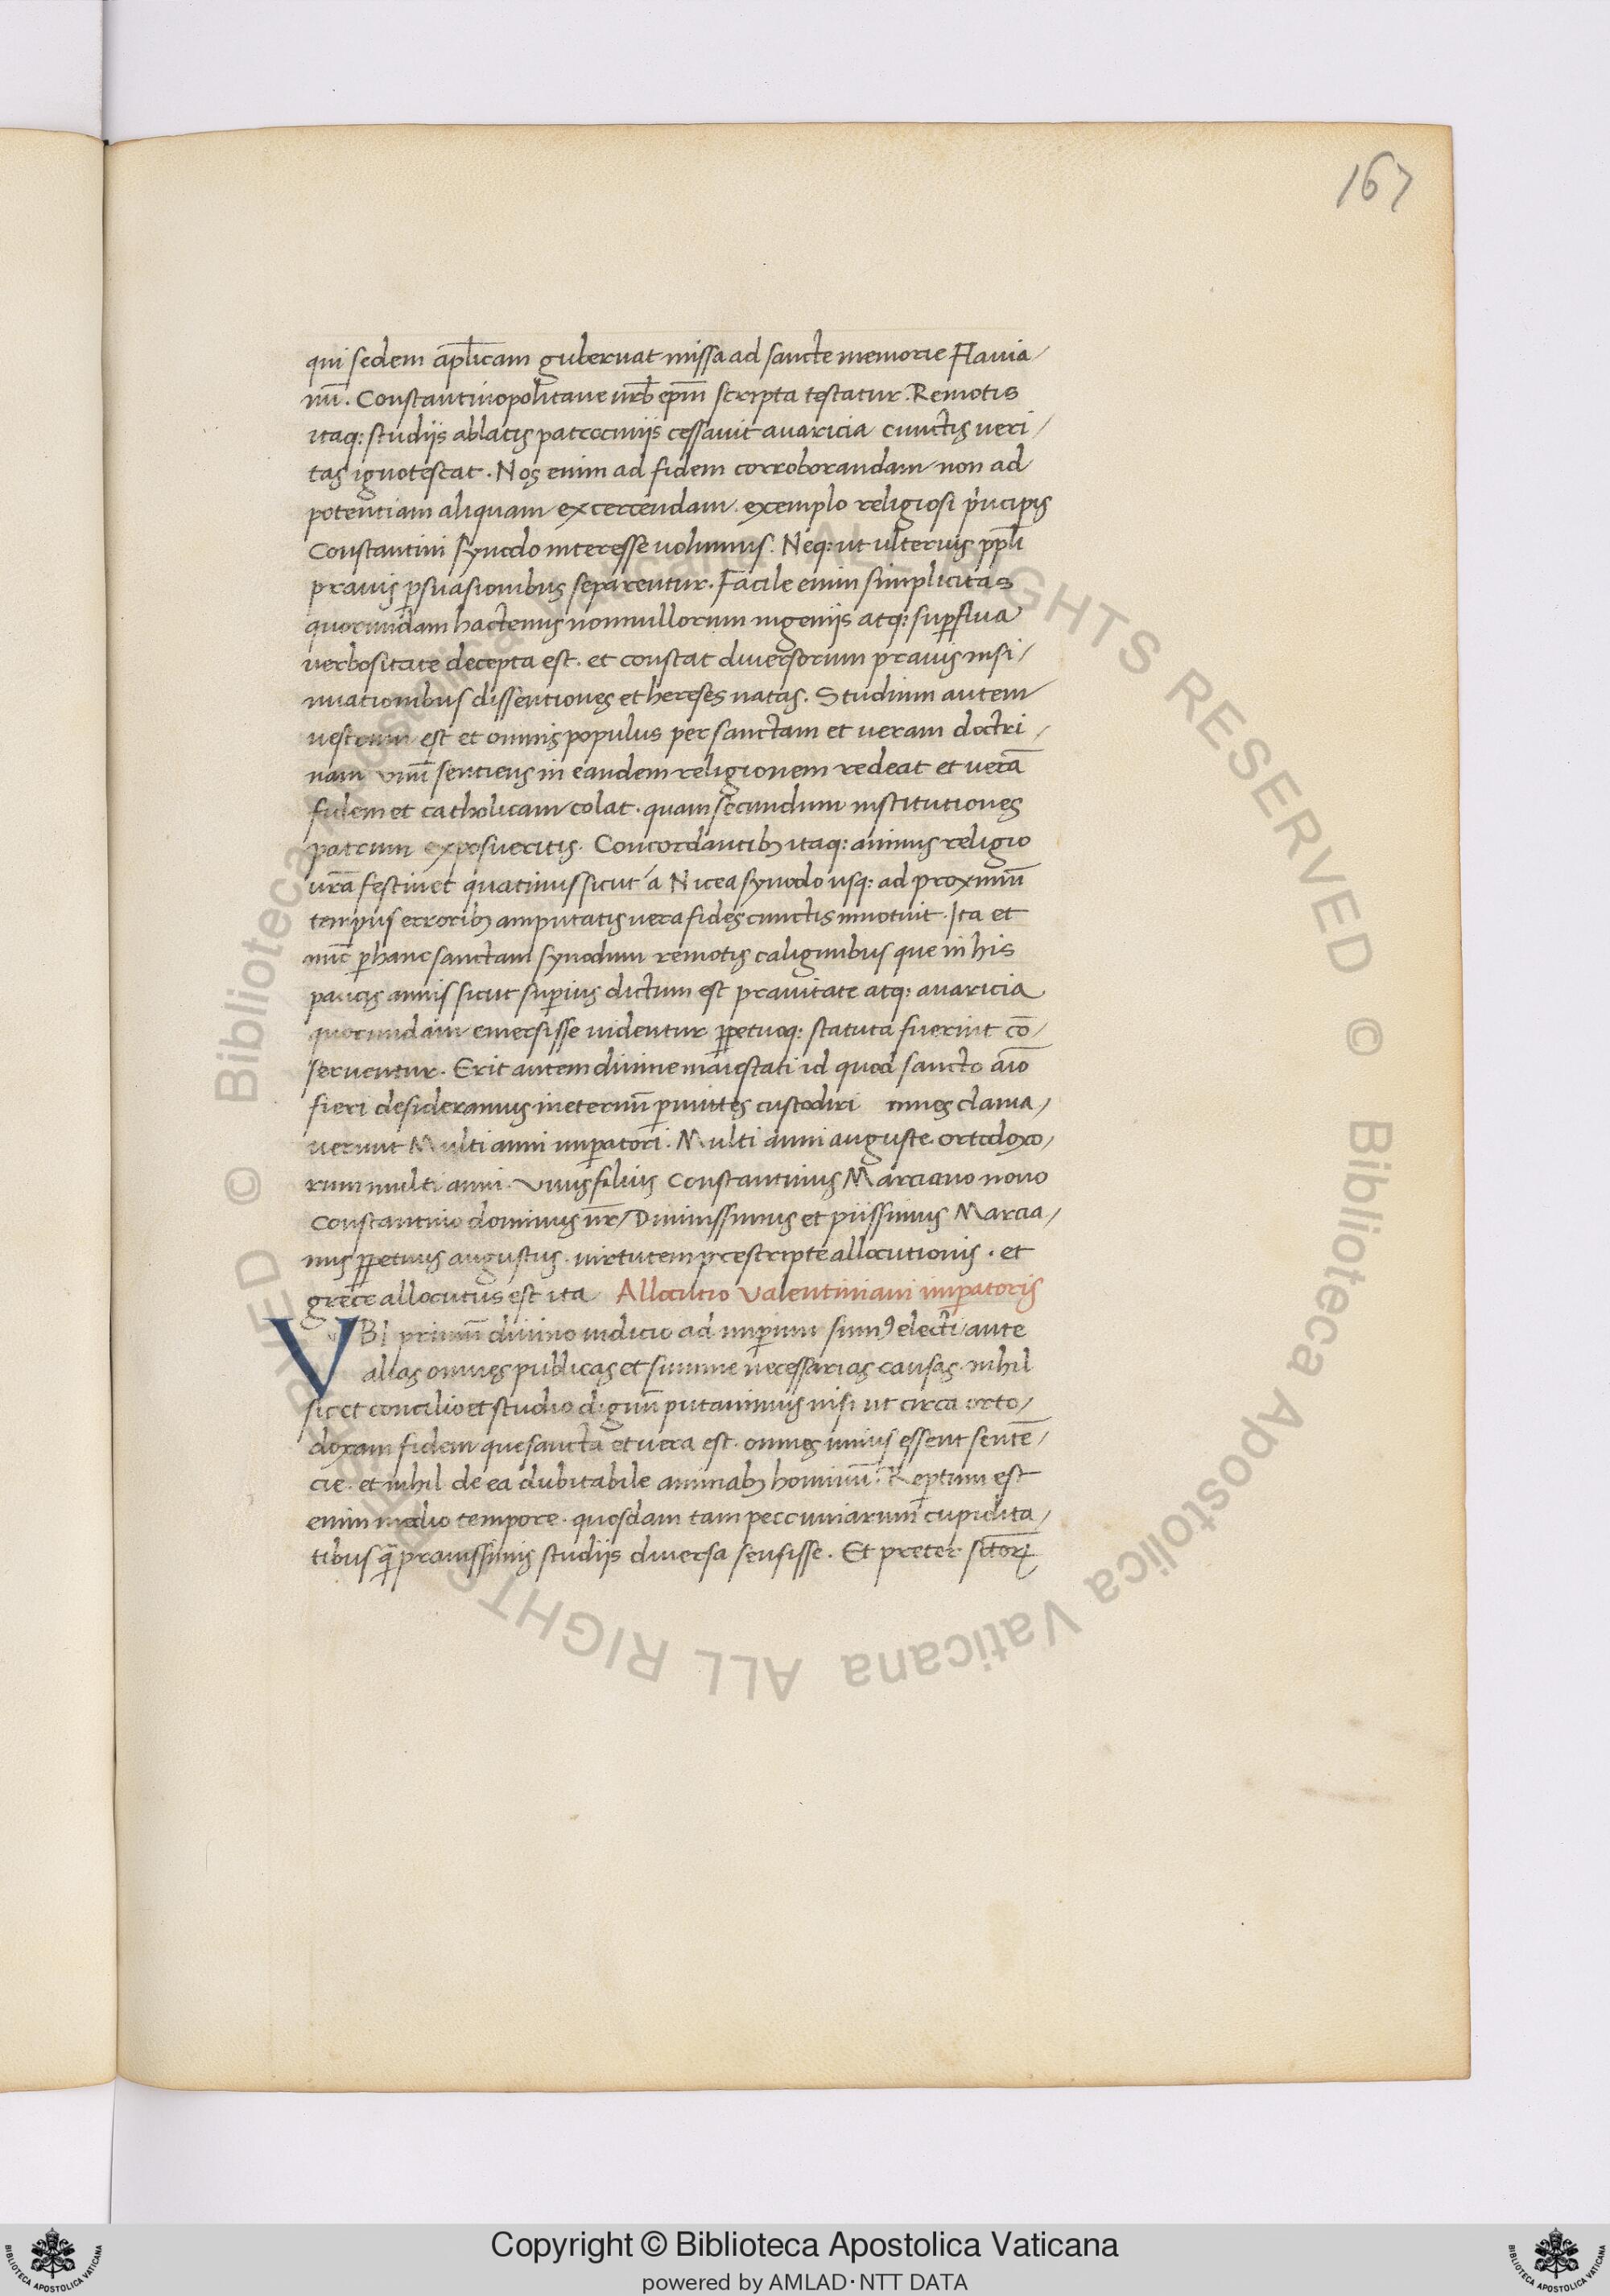 167
qui sedem apl̄icam gubernat missa ad sancte memorie Flauia/
nū. Constantinopolitane urb̄ ep̄m scripta testatur. Remotis
itaq: studijs ablatis patrocinijs cessauit auaricia cunctis ueri/
tas ignotescat. Nos enim ad fidem corroborandam non ad
potentiam aliquam excercendam. exemplo religiosi principis
Constantini synodo interesse uolumus. Neq: ut ulterius ppl̄i
prauis p̱suasionibus separentur. Facile enim simplicitas
quorundam hactenus nonnullorum ingenijs atq: sup̱flua
uerbositate decepta est. et constat diuersorum prauis insi/
nuationibus dissentiones et hereses natas. Studium autem
uestrum est et omnis populus per sanctam et ueram doctri/
nam unū sentiens in eandem religionem redeat et uerā
fidem et catholicam colat. quam secundum institutiones
patrum exposueritis. Concordantibꝫ itaq: animis religio
ur̄a festinet quatinus sicut a Nicea synodo usq: ad proximū
tempus erroribꝫ amputatis uera fides cunctis innotuit. Ita et
nūc p̱ hanc sanctam synodum remotis caliginibus que in his
paucis annis sicut sup̱ius dictum est prauitate atq: auaricia
quorundam emersisse uidentur p̱petuoq: statuta fuerint cō/
seruentur. Erit autem diuine maiestati id quod sancto aīo
fieri desideramus in eternū p̱ custodiri mnes clama/
uerunt Multi anni imp̱atori. Multi anni auguste. ortodoxo/
rum multi anni. Vnus filius Constantinus Marciano nouo
Constantino dominus nr̄/ Diuinissimus et pijssimus Marcia/
nus p̱petuus augustus. uirtutem prescripte allocutionis. et
grece allocutus est ita Allocutio Valentiniani imp̱atoris
VBI primū diuino iudicio ad imp̱ium sumꝰ electi/ ante
alias omnes publicas et summe necessarias causas. nihil
sic et concilio et studio dignū putauimus nisi ut circa orto/
doxam fidem que sancta et uera est. omnes unius essent sentē/
cie. et nihil de ea dubitabile animabꝫ hominū. Reptum est
enim medio tempore. quosdam tam peccuniarum cupidita/
tibus q̄ prauissimis studijs diuersa sensisse. Et preter
Copyright © Biblioteca Apostolica Vaticana
powered by AMLAD·NTT DATA
© Biblioteca Apostolica Vaticana ALL RIGHTS RESERVED
© Biblioteca Apostolica Vaticana ALL RIGHTS RESERVED
BIBLIOTECA APOSTOLICA VATICANA
BIBLIOTECA APOSTOLICA VATICANA